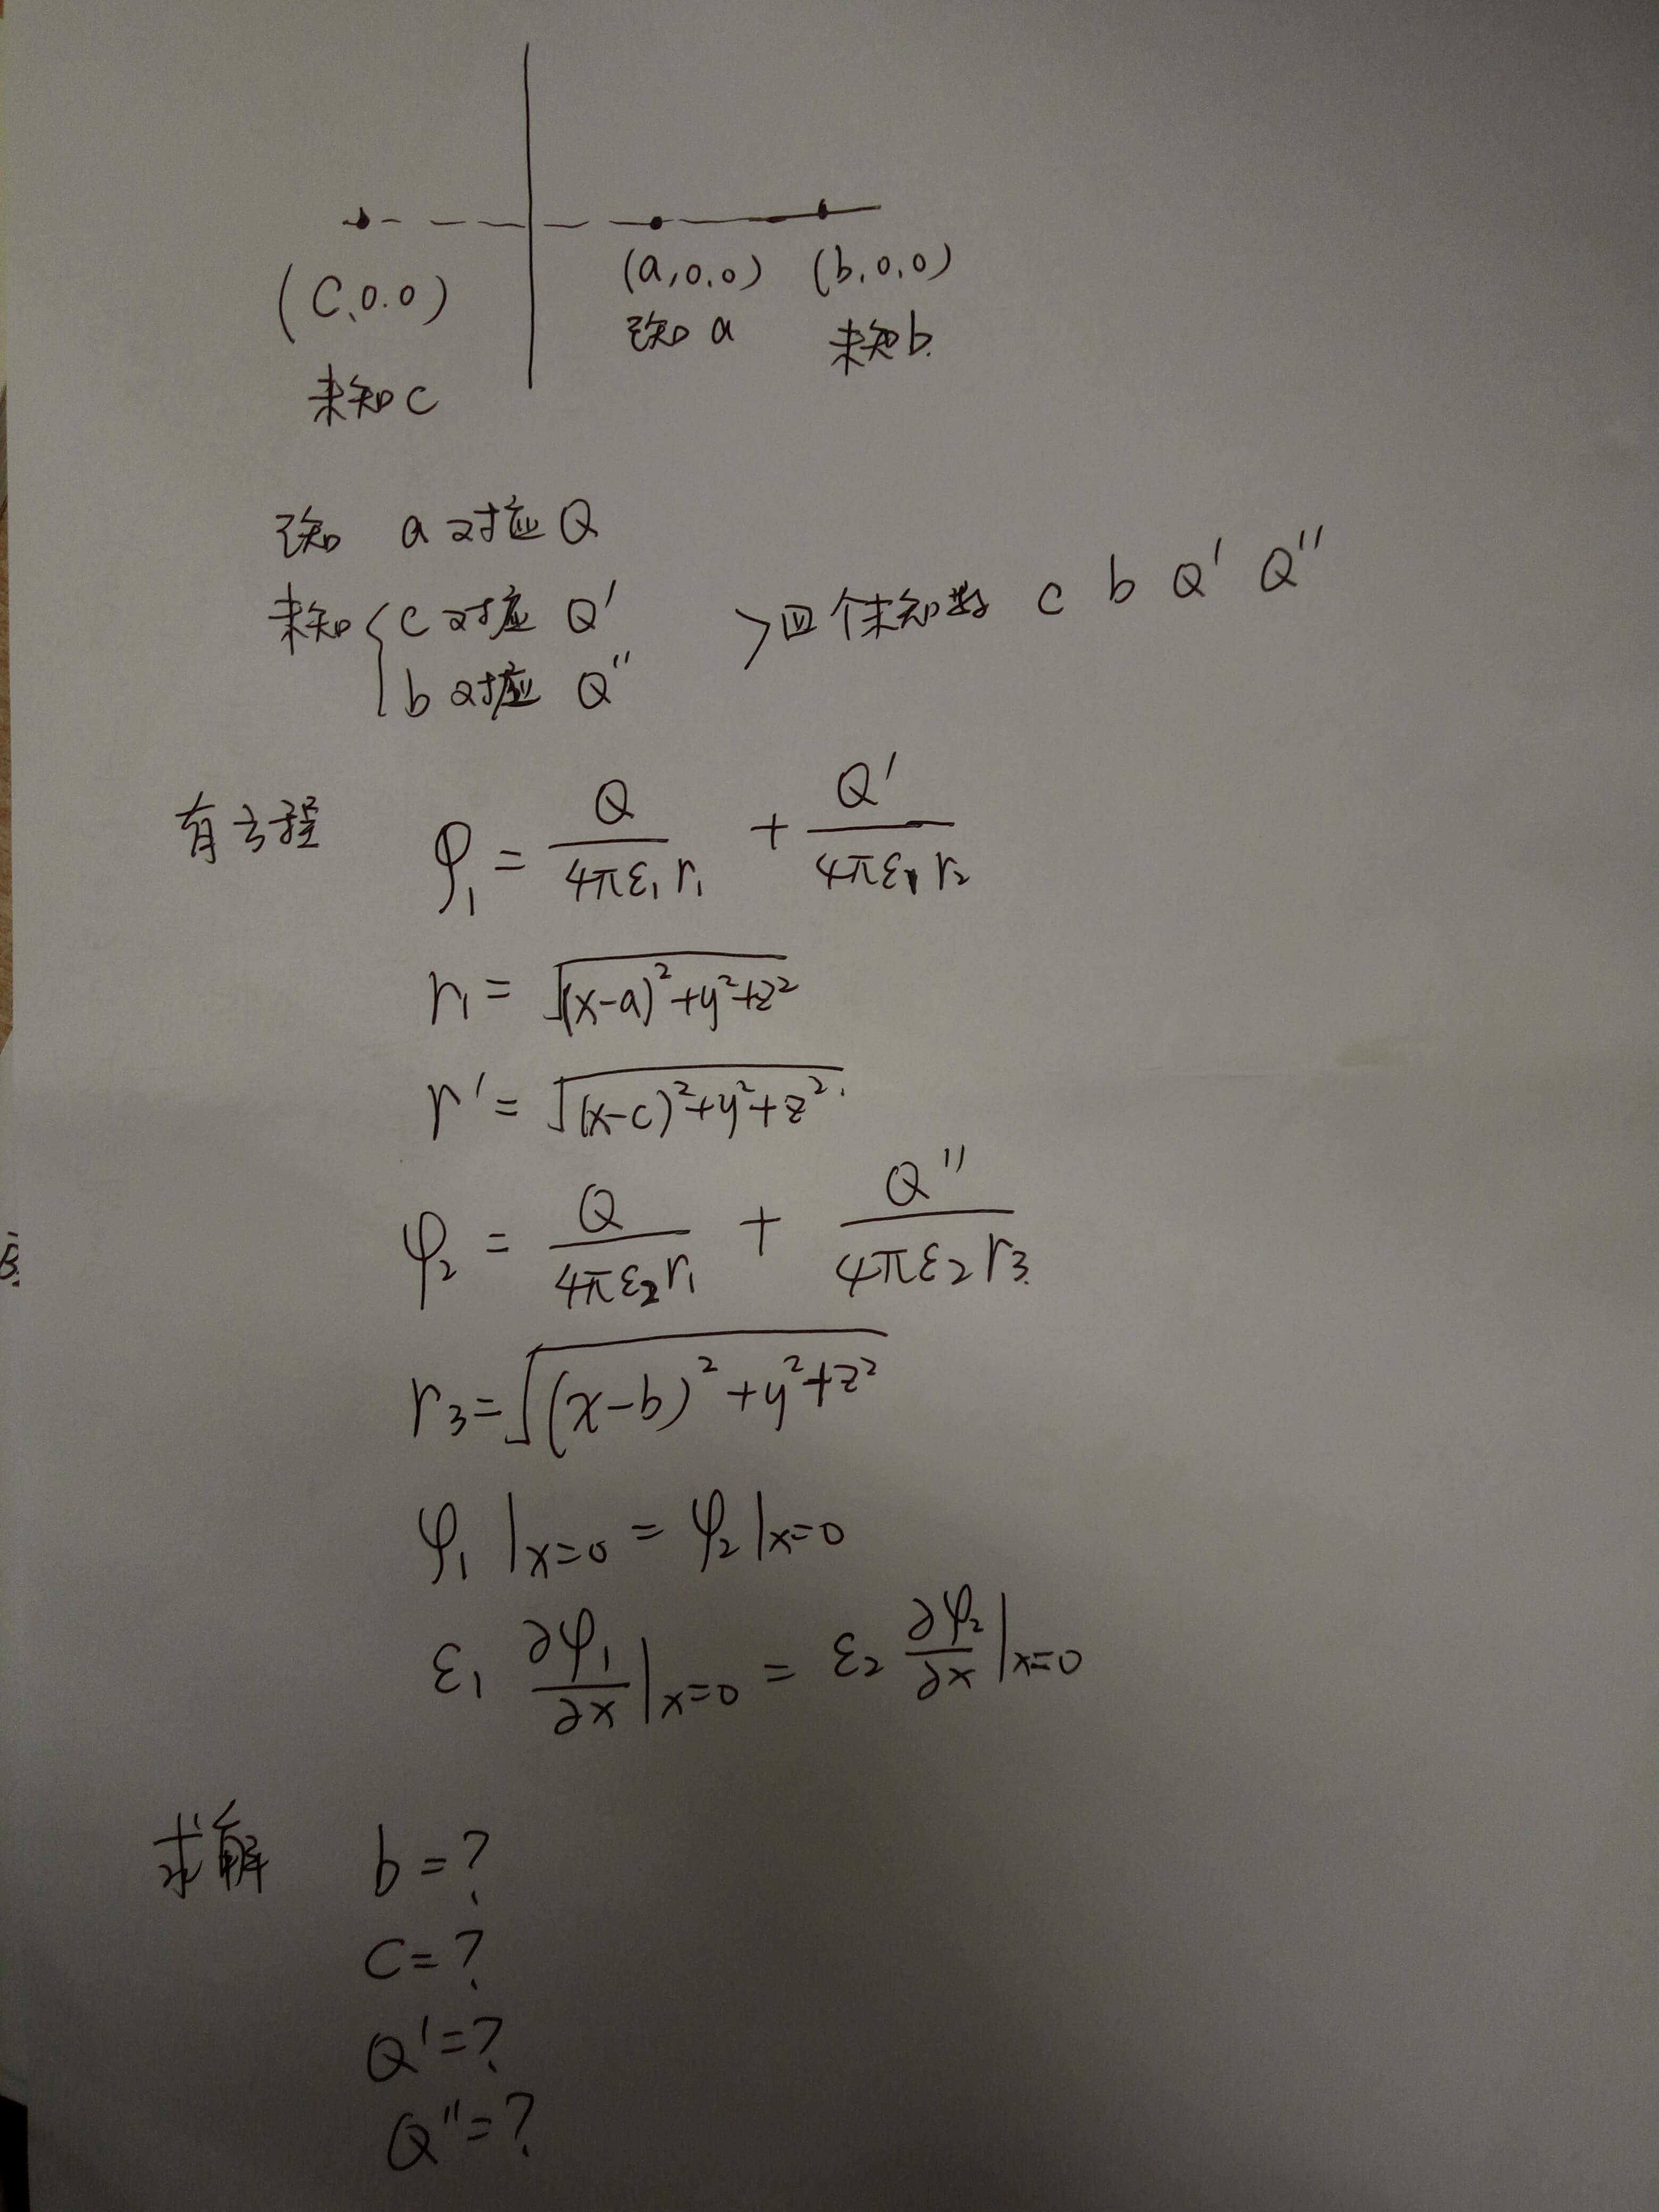 (C,0.0)
(a,0,0) (b,0,0)
已知 a
未知 b.
未知 C
已知 a 对应 Q
未知 { c 对应 Q′ > 四个未知数 c b Q′ Q″
b 对应 Q″
有方程 φ₁ = Q/(4πε₁r₁) + Q′/(4πε₁r₂)
r₁ = √((x-a)²+y²+z²)
r′ = √((x-c)²+y²+z²)
φ₂ = Q/(4πε₂r₁) + Q″/(4πε₂r₃)
r₃ = √((x-b)²+y²+z²)
φ₁|x=0 = φ₂|x=0
ε₁ ∂φ₁/∂x|x=0 = ε₂ ∂φ₂/∂x|x=0
求解 b=?
C=?
Q′=?
Q″=?